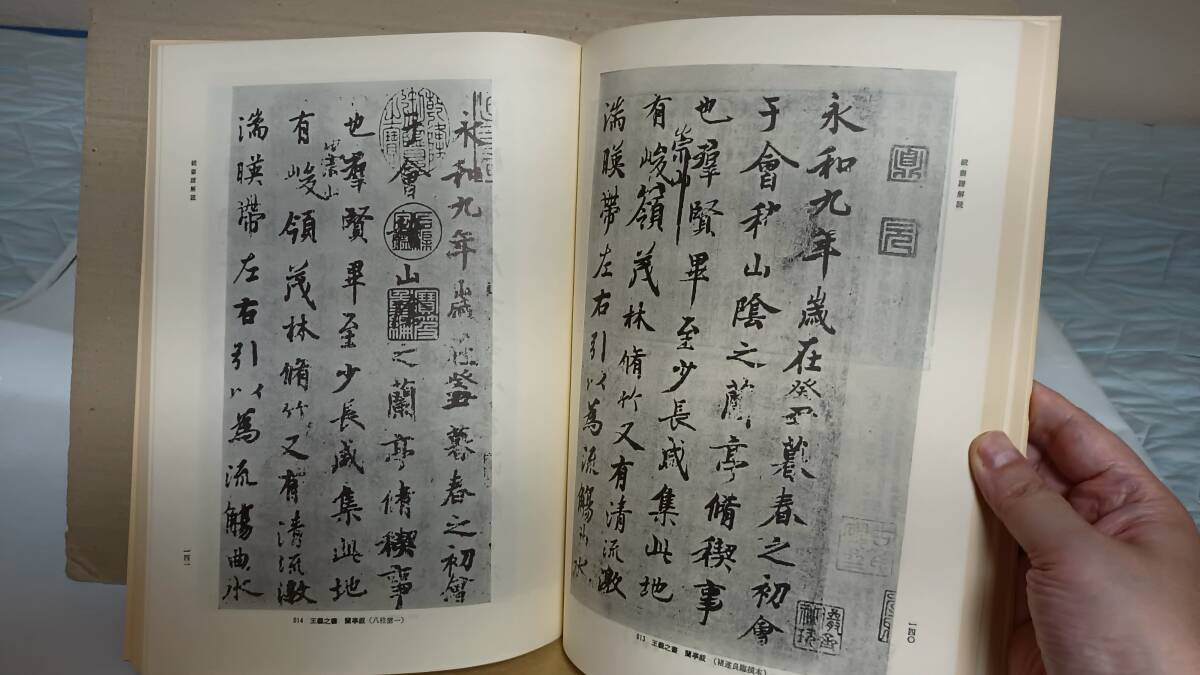 続書譜解説
永和九年歲在癸丑暮春之初會
于會稽山陰之蘭亭脩稧事
也羣賢畢至少長咸集此地
有崇山峻嶺茂林脩竹又有清流激
湍暎帶左右引以為流觴曲水
013 王羲之書 蘭亭叙(褚遂良臨摸本)
一四〇
永和九年歲在癸丑暮春之初會
會山之蘭亭脩稧事
也羣賢畢至少長咸集此地
有崇山峻領茂林脩竹又有清流激
湍暎帶左右引以為流觴曲水
014 王羲之書 蘭亭叙(八柱第一)
続書譜解説
一四一